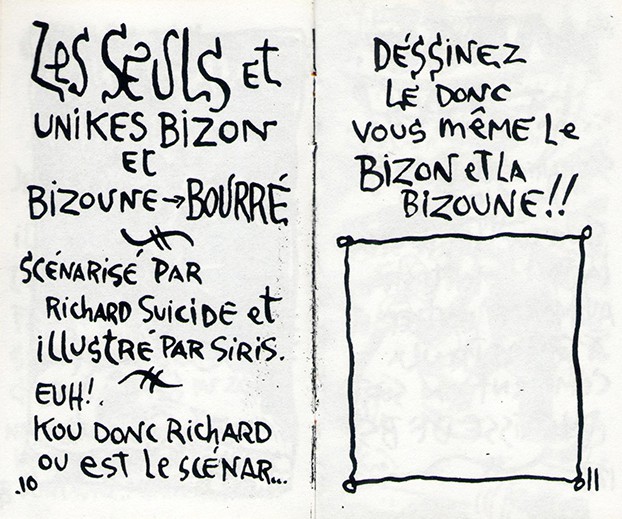 Les Seuls et
UNIKES BIZON
ET
BIZOUNE → BOURRÉ
SCÉNARISÉ PAR
RICHARD SUICIDE et
illUSTRÉ PAR SIRIS.
EUH!.
KOU DONC RICHARD
OU EST LE SCÉNAR...
.10
DÉSSINEZ
LE DONC
VOUS MÊME Le
BIZON eT LA
BIZOUNE!!
11